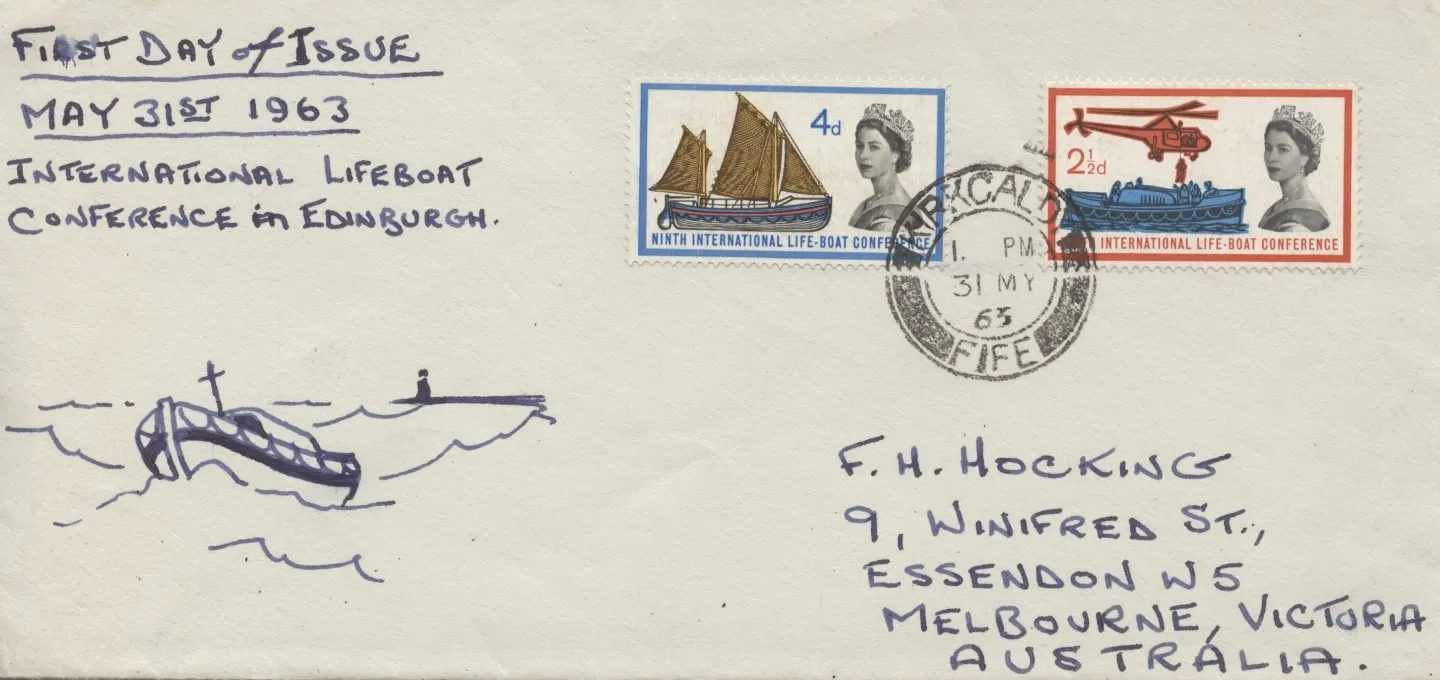 FIRST DAY of ISSUE
MAY 31ST 1963
INTERNATIONAL LIFEBOAT
CONFERENCE in EDINBURGH.
4d
NINTH INTERNATIONAL LIFE-BOAT CONFERENCE
2½d
INTERNATIONAL LIFE-BOAT CONFERENCE
KIRKCALDY
1. PM
31 MY
63
FIFE
F. H. HOCKING
9, WINIFRED ST.,
ESSENDON W5
MELBOURNE, VICTORIA
AUSTRALIA.